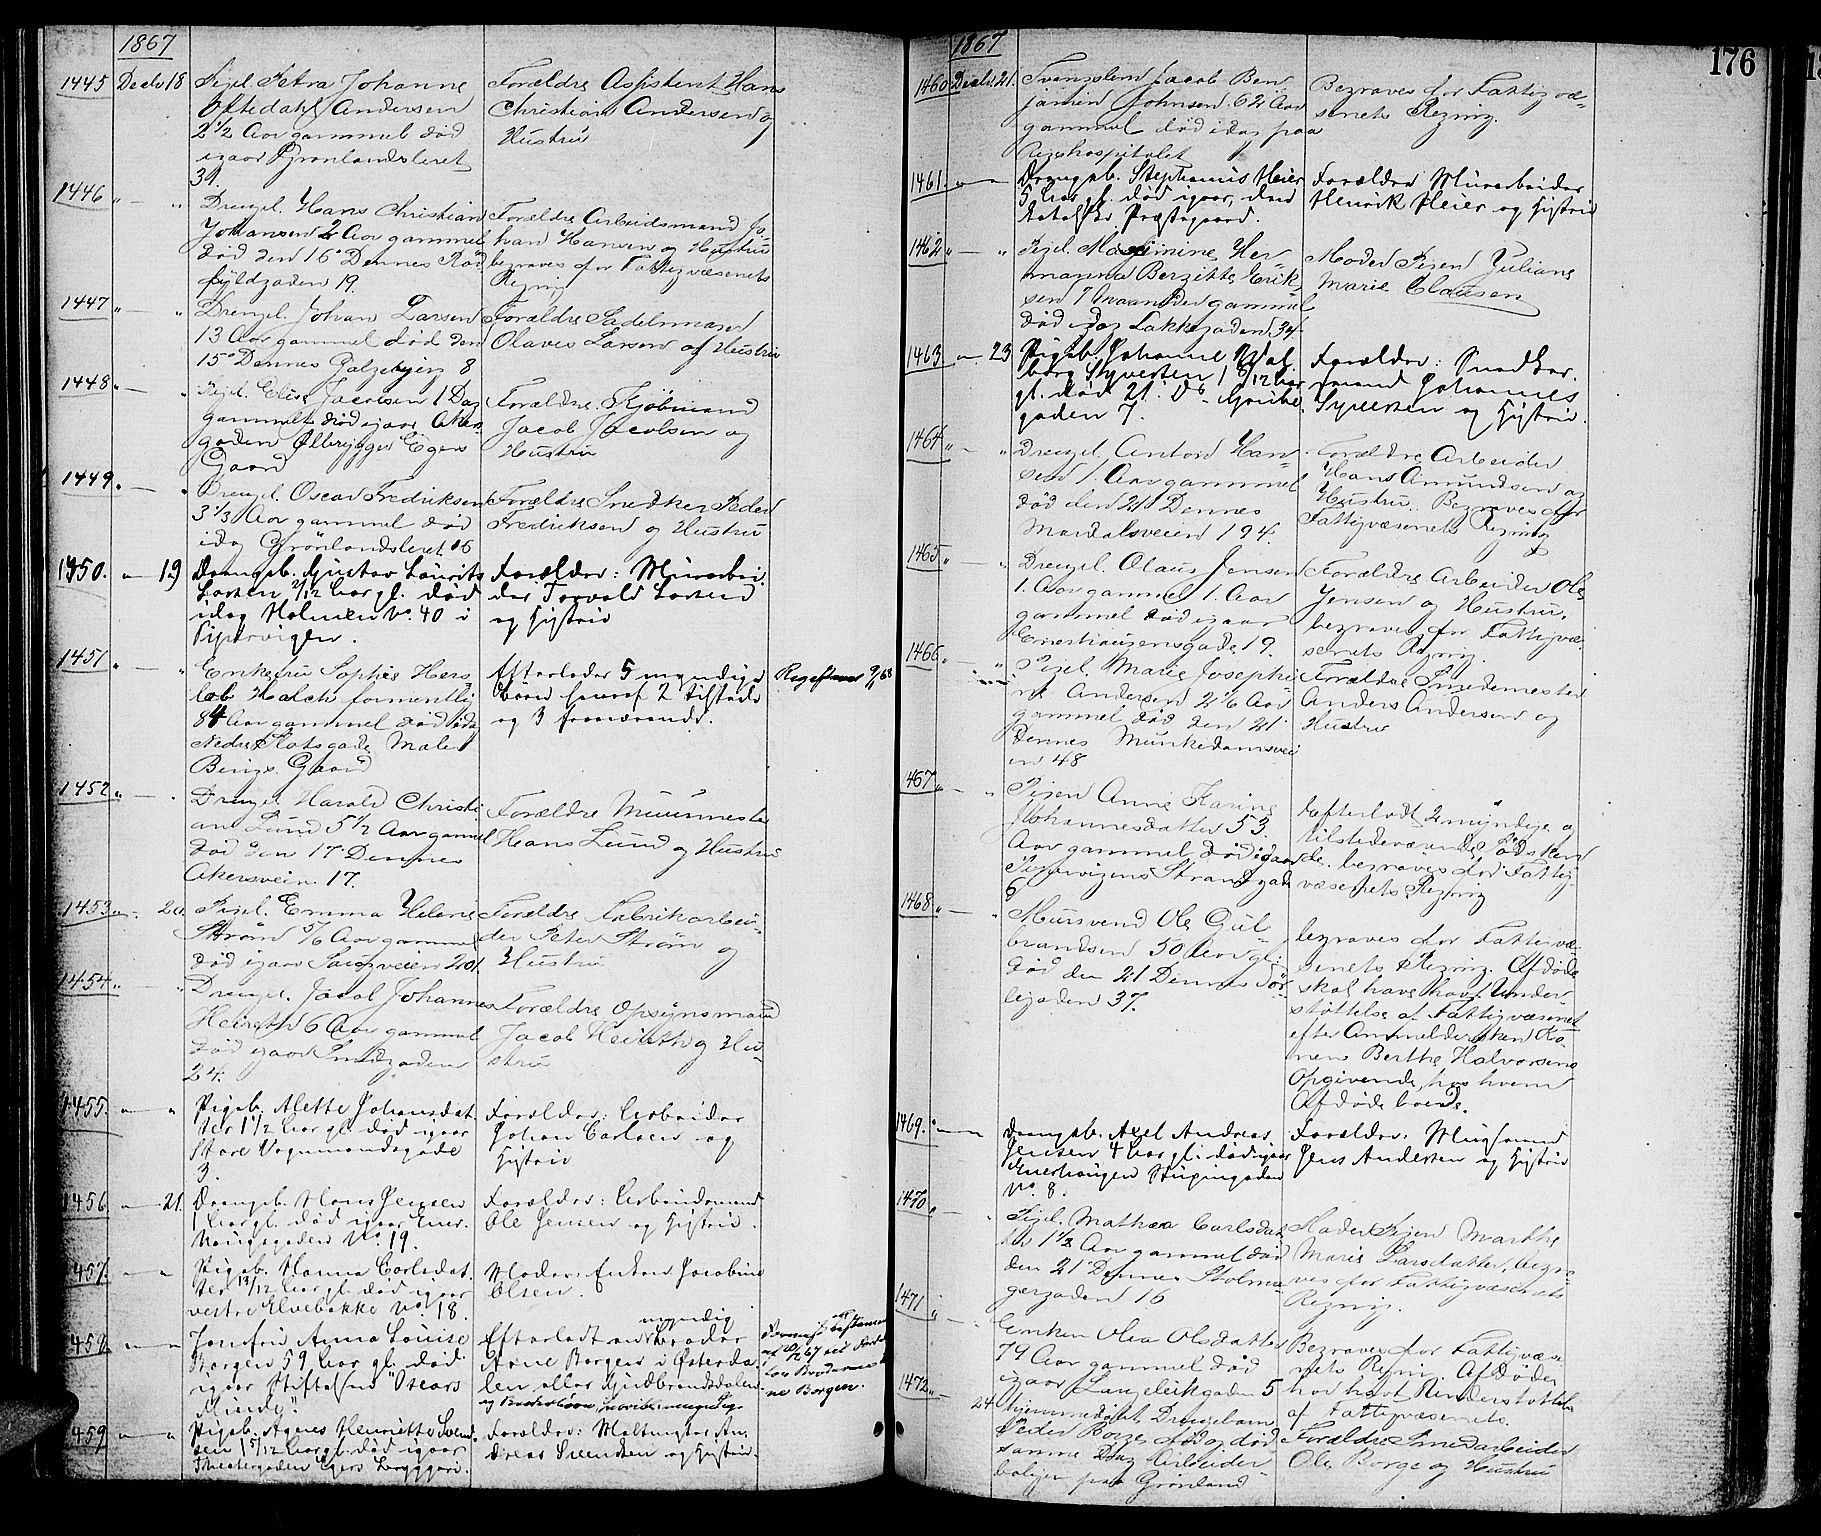 1867
1445 Decbr 18 Pigel. Petra Johanne
Oftedahl Andersen
2 1/2 Aar gammel død
igaar Grønlandsleret
31.
Forældre Assistent Hans
Christian Andersen og
Hustru
1446 " — " Drengel. Hans Christian
Johansen 2 Aar gammel
død den 16 Dennes Rød
fyldgaden 19.
Forældre Arbeidsmand Jo-
han Hansen og Hustru
begraves for Fattigvæsenets
Regnig
1447 " — " Drengel. Johan Larsen
13 Aar gammel død den
15de Dennes Galgebjerg 8
Forældre Sadelmager
Olaves Larsen og Hustru
1448 " — " Pigel. Elise Jacobsen 1 Dag
gammel død igaar Aker-
gaden Ølbrygger Egers
Gaard
Forældre. Kjøbmand
Jacob Jacobsen og
Hustru
1449 " — " Drengel. Oscar Fredriksen
3 1/3 Aar gammel død
idag Grønlandsleret 16
Forældre Snedker Peder
Fredriksen og Hustru
1450. " — 19 Drengeb. Gustav Laurits
Larsen 2/12 Aar gl. død
idag Holmen No. 40 i
Pipervigen.
Forældre: Murarbei-
der Torvald Larsen
og Hustru
1451 " — " Enkefru Sophie Hers
leb Holch formentlig
84 Aar gammel død idag
Nedre Slotsgade Maler
Bergs Gaard
Efterlader 5 myndige
Børn hvoraf 2 tilstede
og 3 fraværende.
1452 " — " Drengel. Harald Christi
an Lund 5 1/2 Aar gammel
død den 17 Dennes
Akersvein 17.
Forældre Muurmester
Hans Lund og Hustru
1453 " — 20 Pigel. Emma Helene
Strøm 5/6 Aar gammel
død igaar Saugveien 201
Forældre Fabrikarbei-
der Peter Strøm og
Hustru
1454 " — " Drengel. Jacob Johannes
Heireth 6 Aar gammel
død igaar Smedgaden
24.
Forældre Opsynsmand
Jacob Heireth og Hu-
stru
1455. " — " Pigeb. Alette Johansdat-
ter 1 1/2 Aar gl. død igaar
Store Vognmandsgade
3.
Forældre: Arbeider
Johan Carlsen og
Hustru
1456 " — 21. Drengeb. Hans Jensen
1 Aar gl. død igaar Ener-
haugsgaden No. 19.
Forældre: Arbeidsmand
Ole Jensen og Hustru.
1457. " — " Pigeb. Hanna Carlsdat-
ter 13/12 Aar gl. død igaar
vestre Elvebakke No. 18.
Moder: Enken Jacobine
Olsen.
1458 " — " Jomfru Anna Louise
Borgen 59 Aar gl. død
igaar Stiftelsen "Oscars
Minde".
myndig
Efterladt en Broder
Arne Borgen i Østerda-
len eller Gudbrandsdalen
1459 " — " Pigeb. Agnes Henriette Svend
sen 1 5/12 Aar gl. død igaar
Theatergaden Egers Bryggeri.
Forældre: Maltmester An-
dreas Svendsen og Hustru.
1867
176
1460 Decbr. 21. Svendslem Jacob Ben
jamin Johnsen. 62 Aar
gammel død idag paa
Rigshospitalet
Begraves for Fattigvæ-
senets Regnig.
1461. " — " Drengeb. Stephanus Heier
5 Aar gl. død igaar, den
katolske Præstegaard.
Forældre Murarbeider
Henrik Heier og Hustru
1462 " — " Pigel. Maximine Her
manna Bergitte Erik-
sen 7 Maaneder gammel
død idag Lakkegaden 34
Moder Pigen Juliane
Marie Clausen
1463 " — 23 Pigeb. Johanne Wal-
borg Syversen 1 6/12 Aar
gl. død 21. ds. Grube-
gaden 7.
Forældre: Snedker-
svend Johannes
Syversen og Hustru.
1464 " — " Drengel. Anton Han-
sen 1. Aar gammel
død den 21 Dennes
Mardalsveien 194.
Forældre Arbeider
Hans Amundsen og
Hustru. Begraves for
Fattigvæsenets Regnig
1465 " — " Drengel. Olaus Jensen
1. Aar gammel 1. Aar
gammel død igaar
Enerhaugensgade 19.
Forældre Arbeider Ole
Jensen og Hustru.
begraves for Fattigvæ-
senets Regnig.
1466 " — " Pigel. Marie Josephi
ne Andersen 2 1/6 Aar
gammel død den 21
Dennes Munkedamsvei
en 48
Forældre Smedemester
Anders Andersen og
Hustru
467 " — " Pigen Anne Karine
Johannesdatter 53
Aar gammel død igaar
Pipervigens Strandgade
6
Efterladt 2 myndige og
tilstedeværende Sødsken
de. begraves for Fattig-
væsenets Regnig
1468 " — " Mursvend Ole Gul-
brandsen 50 Aar gl.
død den 21 Dennes Tør-
tegaden 37.
begraves for Fattigvæ-
senets Regnig. Afdøde
skal have havt Under-
støttelse af Fattigvæsenet
efter Anmeldersken Ko-
nen Berthe Halvorsens
Opgivende, hos hvem
Afdøde boede.
1469. " — " Drengeb. Axel Andreas
Jensen 4 Aar gl. død igaar
Enerhaugen Stupingaden
No. 8.
Jens Andersen og Hustru
1470 " — " Pigel. Mathea Carlsdat
ter 1 1/2 Aar gammel død
den 21 Dennes Stolma-
gergaden 16
Moder Pigen Marthe
Marie Larsdatter, begra-
ves for Fattigvæsenets
Regnig.
1471 " — Enken Olea Olsdatter
79 Aar gammel død
igaar Langeleikgaden 5
Begraves for Fattigvæse-
nets Regni. Afdøde
har havt Understøttelse
af Fattigvæsenet.
1472 " — 24 Hjemmedøbt Drengebarn
Peder Borge født og død
samme Dag Arbeider
bolig paa Grønland
Forældre Smedarbeider
Ole Borge og Hustru